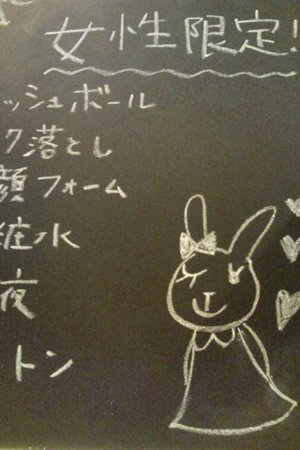 女性限定!
ッシュボール
ク落とし
顔フォーム
粧水
液
トン